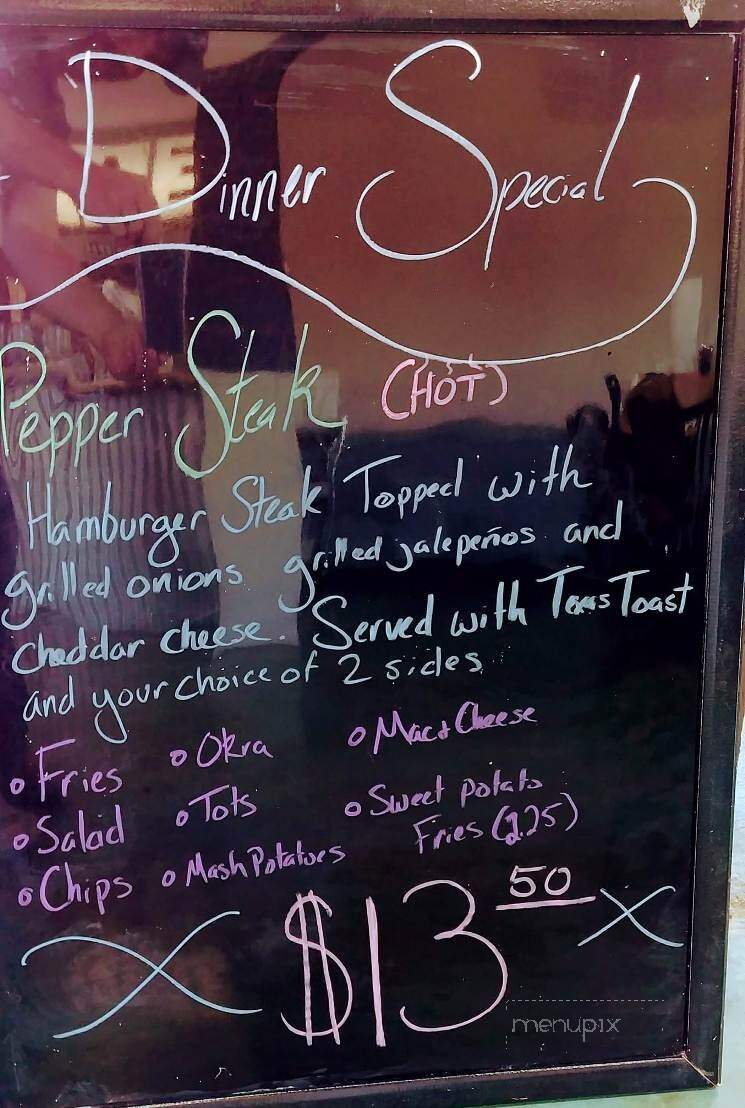 Dinner Special
Pepper Steak (HOT)
Hamburger Steak Topped with
grilled onions grilled jalepeños and
cheddar cheese. Served with Texas Toast
and your choice of 2 sides
o Fries o Okra o Mac & Cheese
o Salad o Tots o Sweet potato
Fries (2.25)
o Chips o Mash Potatoes
$13 50
menupix